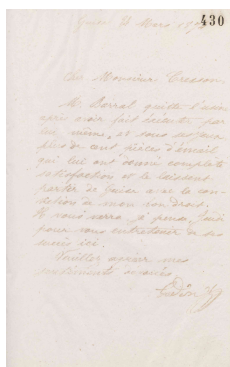 430
Guise 21 Mars 18
Cher Monsieur
M. Borral quitte l'usine
après avoir fait exécuter par
lui même, et sous ses yeux
plus de cent pièces d'émail
qui lui ont donné complète
satisfaction et le laissent
partir de Guise avec la
de mon bon Droit.
Il vous verra je pense
pour vous entretenir de ses
succès ici.
Veuillez agréer mes
sentiments
Godin